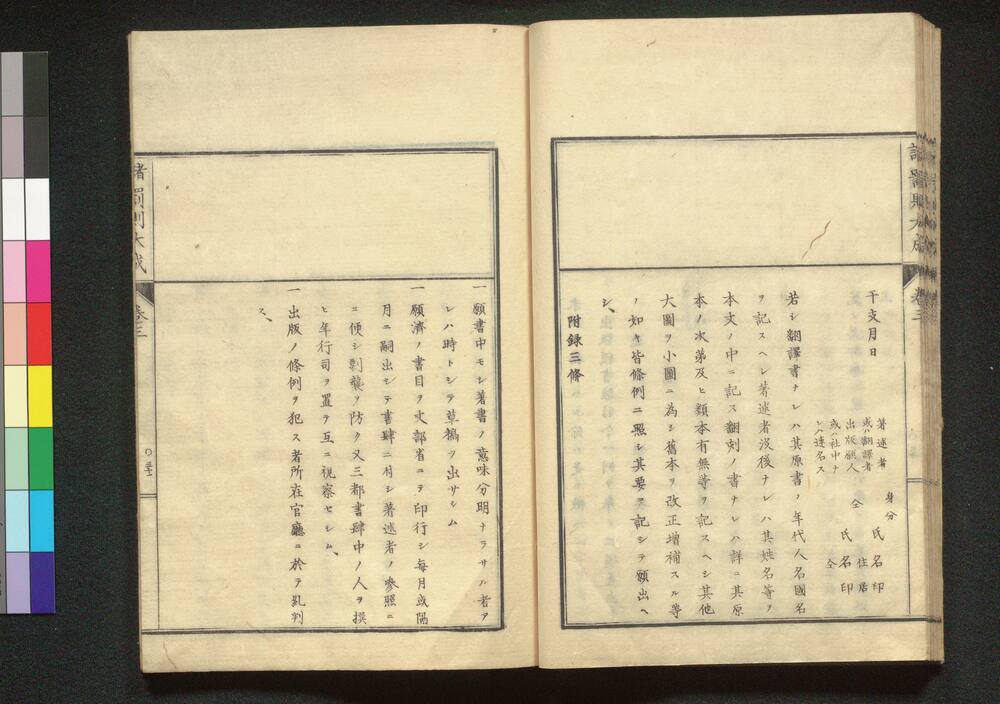 諸罰則大成
卷三
干支月日
著述者
或ハ翻譯者
出版願人
或ハ社中ナ
レハ連名ス
身分
氏名印
住居
仝
氏名印
仝
若シ翻譯書ナレハ其原書ノ年代人名國名
ヲ記スヘシ著述者沒後ナレハ其姓名等ヲ
本文ノ中ニ記ス翻刻ノ書ナレハ詳ニ其原
本ノ次第及ヒ類本有無等ヲ記スヘシ其他
大圖ヲ小圖ニ為シ舊本ヲ改正増補スル等
ノ如キ皆條例ニ照シ其要ヲ記シテ願出ヘ
シ、
附錄三條
一願書中モシ著書ノ意味分明ナラサル者ア
レハ時トシテ草稿ヲ出サシム
一願濟ノ書目ヲ文部省ニテ印行シ每月或隔
月ニ嗣出シテ書肆ニ付シ著述者ノ參照ニ
ニ便シ剽襲ヲ防ク又三都書肆中ノ人ヲ撰
ヒ年行司ヲ置テ互ニ視察セシム、
一出版ノ條例ヲ犯ス者所在官廳ニ於テ糺判
ス、
諸罰則大成
卷三